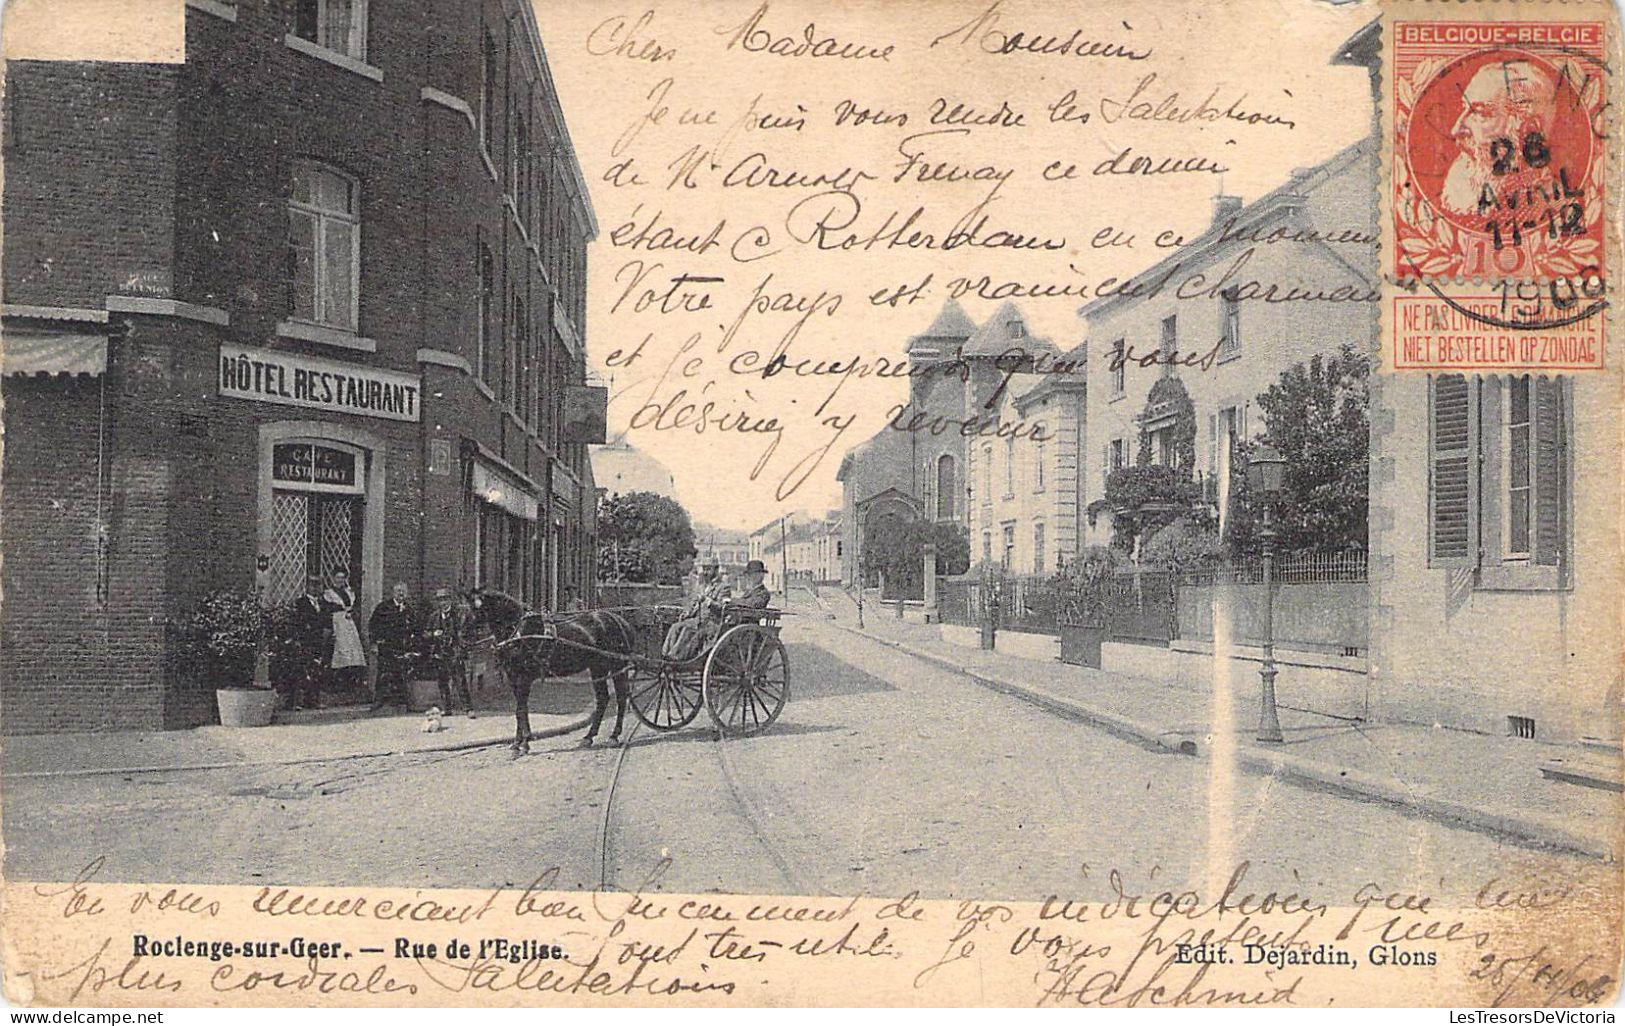 Chers Madame Monsieur
Je ne puis vous rendre les Salutations
de Mr Frenay ce dernier
étant à Rotterdam en ce moment
Votre pays est vraiment charmant
et je comprends que vous
désiriez y revenir
BELGIQUE-BELGIE
26
AVRIL
11-12
1906
10
NE PAS LIVRER LE DIMANCHE
NIET BESTELLEN OP ZONDAG
HÔTEL RESTAURANT
CAFÉ
RESTAURANT
En vous remerciant bien sincèrement de vos indications qui me
Roclenge-sur-Geer. — Rue de l'Eglise.
Edit. Dejardin, Glons
sont très utiles. Je vous présente mes
plus cordiales Salutations.
Schmid.
LesTresorsDeVictoria
www.delcampe.net